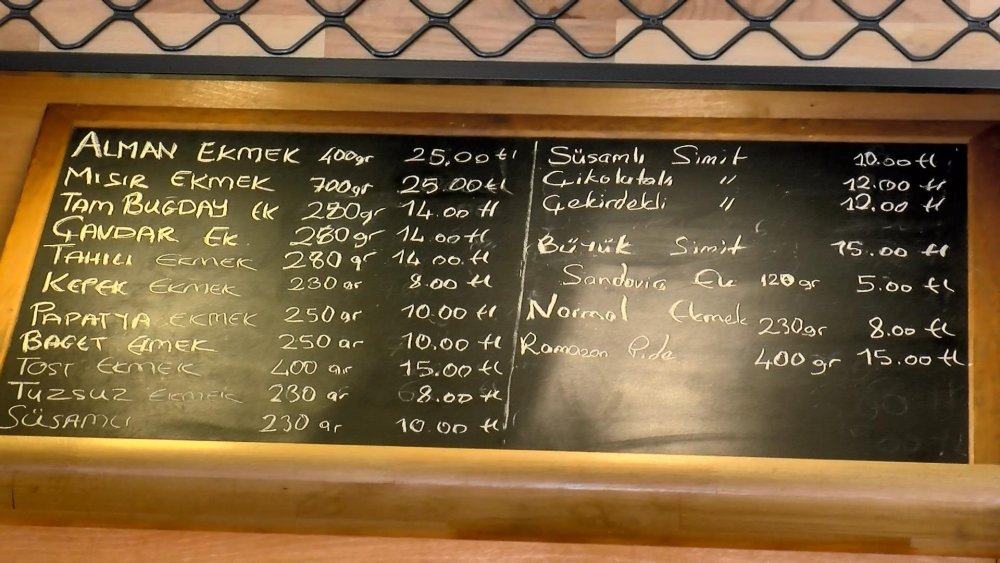 ALMAN EKMEK 400gr 25.00 tl
MISIR EKMEK 700gr 25.00 tl
TAM BUGDAY EK 280gr 14.00 tl
ÇAVDAR EK. 280gr 14.00 tl
TAHILI EKMEK 280gr 14.00 tl
KEPEK EKMEK 230gr 8.00 tl
PAPATYA EKMEK 250gr 10.00 tl
BAGET EKMEK 250gr 10.00 tl
TOST EKMEK 400gr 15.00 tl
TUZSUZ EKMEK 230gr 8.00 tl
SÜSAMLI 230gr 10.00 tl
Süsamlı Simit 10.00 tl
Çikolatalı " 12.00 tl
Çekirdekli " 12.00 tl
Büyük Simit 15.00 tl
Sandoviç Ek 120gr 5.00 tl
Normal Ekmek 230gr 8.00 tl
Ramazan Pide 400gr 15.00 tl